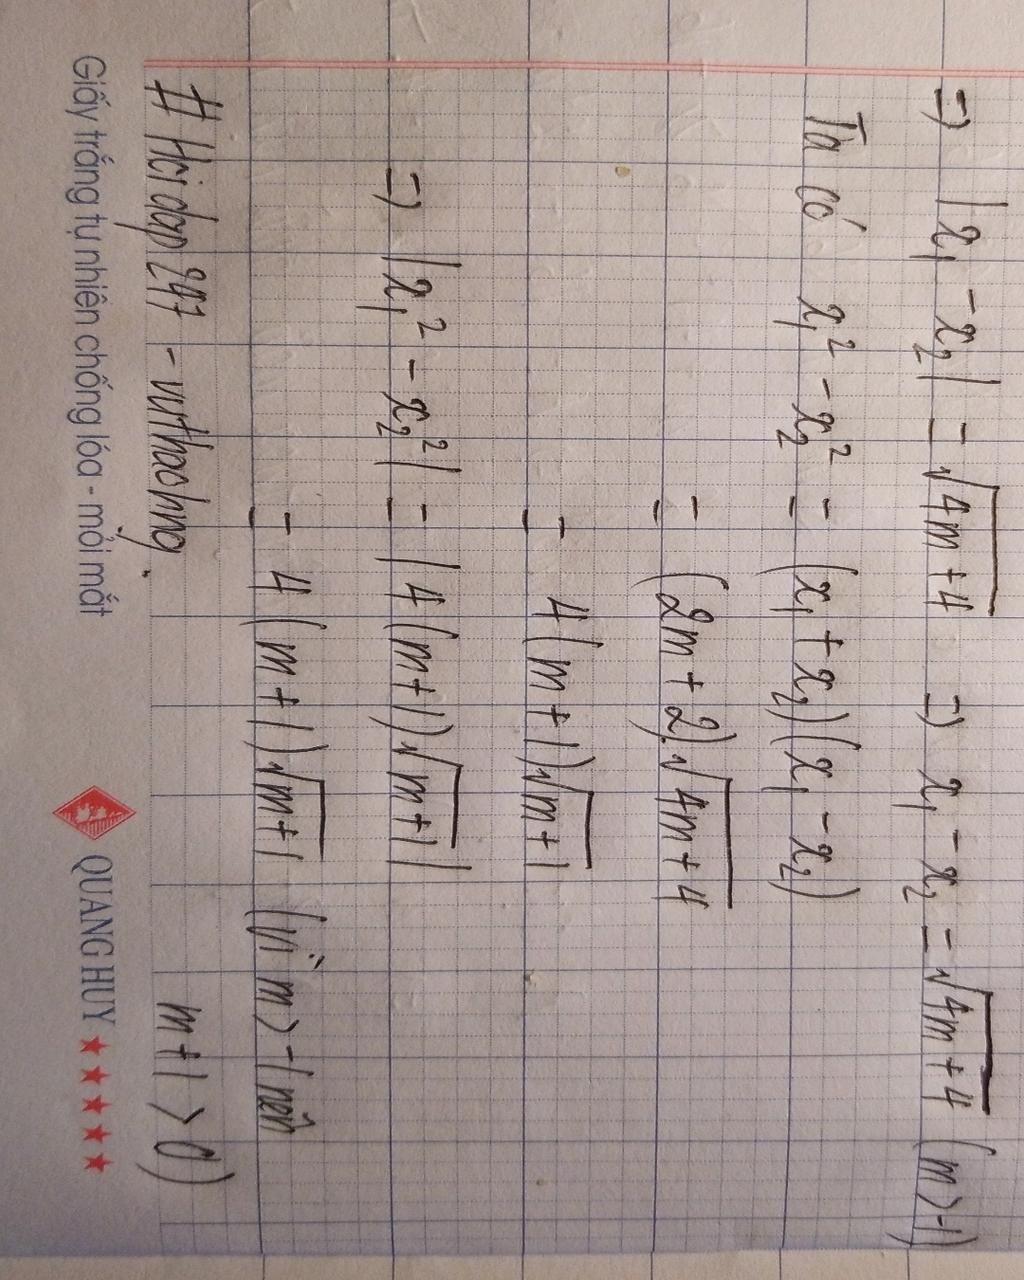 => |x₁ - x₂| = √(4m+4) => x₁ - x₂ = √(4m+4) (m>-1)
Ta có x₁² - x₂² = (x₁ + x₂)(x₁ - x₂)
= (2m+2)√(4m+4)
= 4(m+1)√(m+1)
=> |x₁² - x₂²| = |4(m+1)√(m+1)|
= 4(m+1)√(m+1) (vì m>-1 nên
m+1>0)
# Hỏi đáp 247 -
Giấy trắng tự nhiên chống lóa - mỏi mắt QUANG HUY ★★★★★